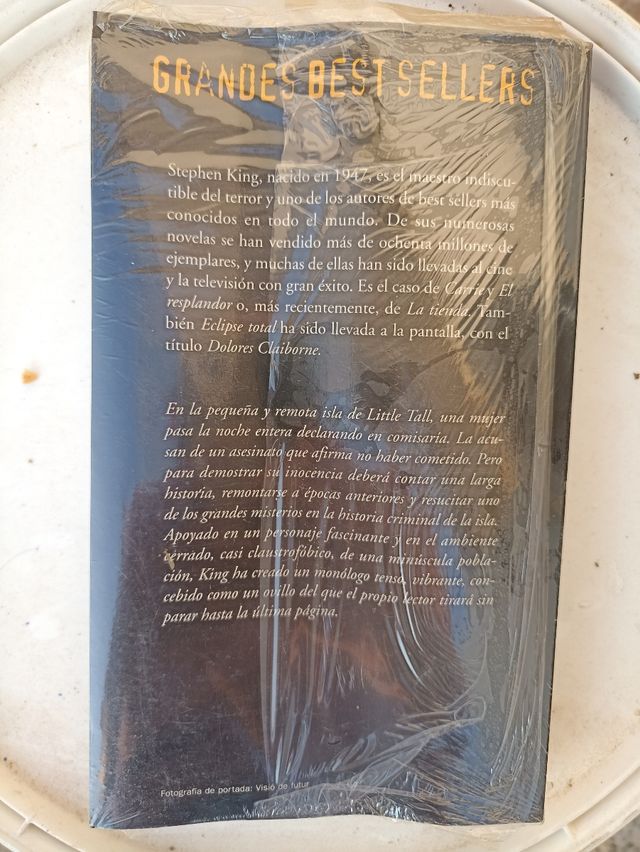 GRANDES BEST SELLERS
Stephen King, nacido en 1947, es el maestro indiscu-
tible del terror y uno de los autores de best sellers más
conocidos en todo el mundo. De sus numerosas
novelas se han vendido más de ochenta millones de
ejemplares, y muchas de ellas han sido llevadas al cine
y la televisión con gran éxito. Es el caso de Carrie y El
resplandor o, más recientemente, de La tienda. Tam-
bién Eclipse total ha sido llevada a la pantalla, con el
título Dolores Claiborne.
En la pequeña y remota isla de Little Tall, una mujer
pasa la noche entera declarando en comisaría. La acu-
san de un asesinato que afirma no haber cometido. Pero
para demostrar su inocencia deberá contar una larga
historia, remontarse a épocas anteriores y resucitar uno
de los grandes misterios en la historia criminal de la isla.
Apoyado en un personaje fascinante y en el ambiente
cerrado, casi claustrofóbico, de una minúscula pobla-
ción, King ha creado un monólogo tenso, vibrante, con-
cebido como un ovillo del que el propio lector tirará sin
parar hasta la última página.
Fotografía de portada: Visió de futur